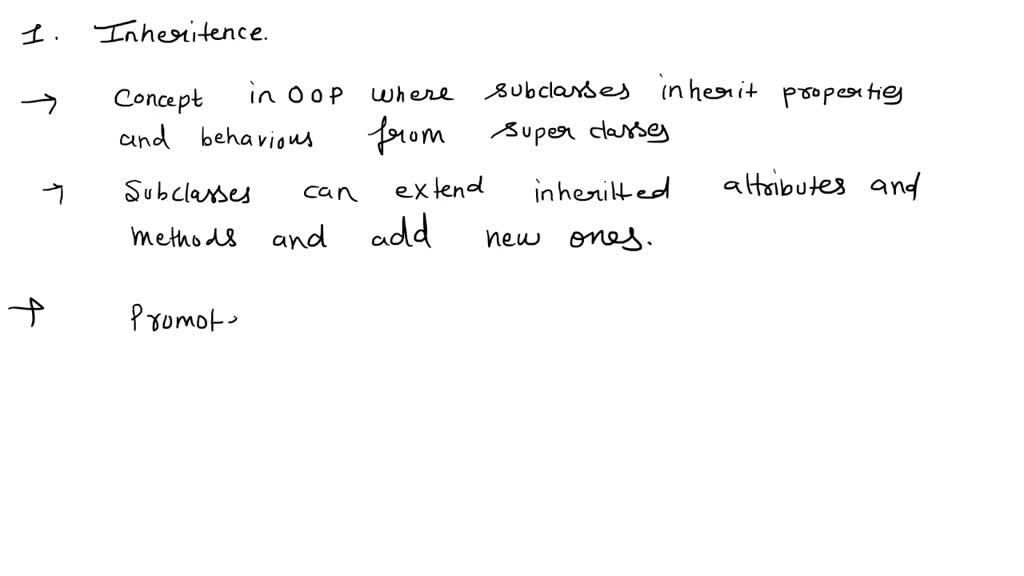 1. Inheritence.
→ Concept in OOP where subclasses inherit properties
and behavious from super classes
→ Subclasses can extend inherilted attributes and
methods and add new ones.
→ Promot